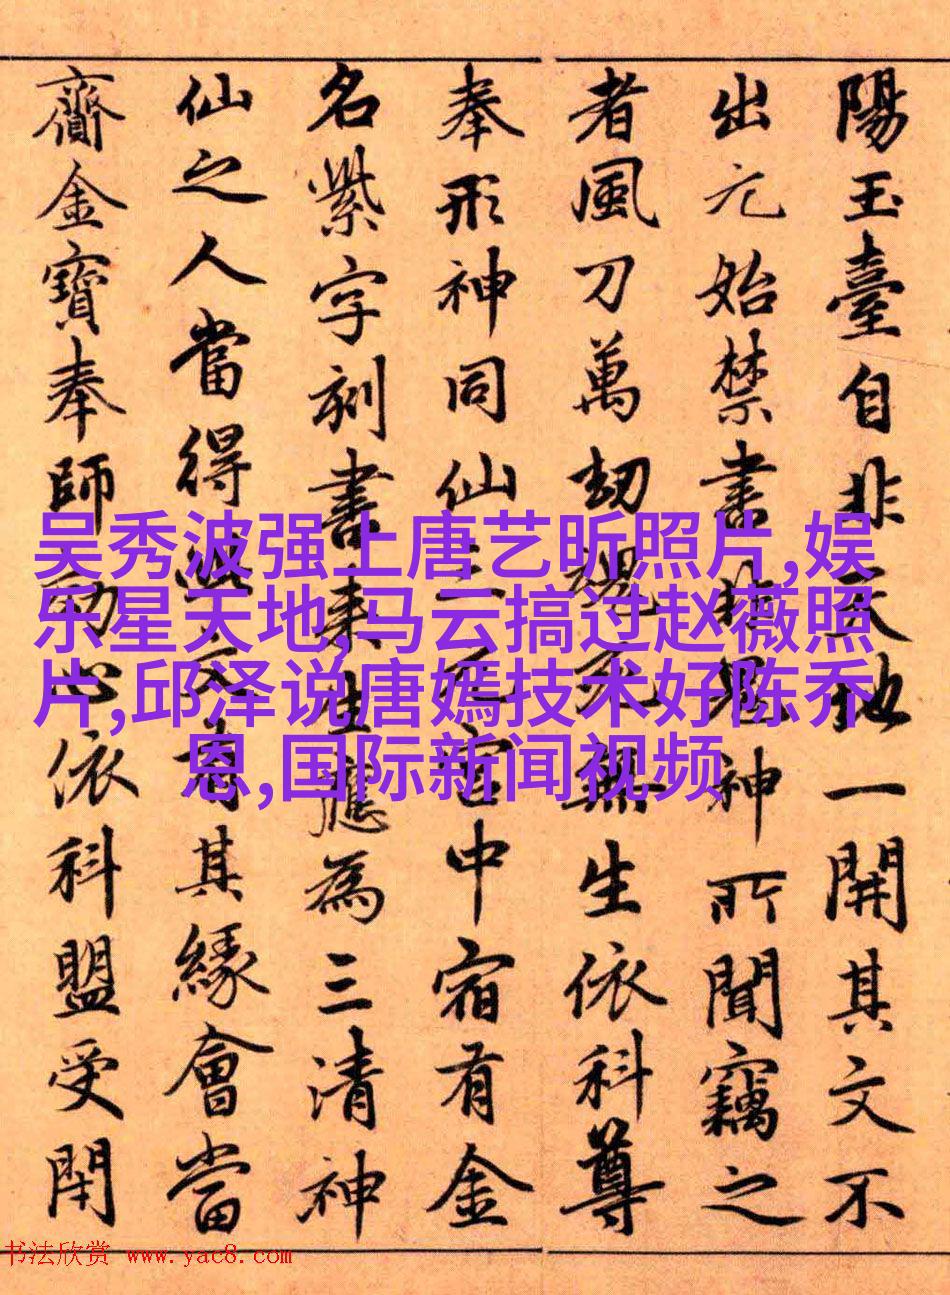 陽玉臺自非天地一開其文不
出元始禁書非鬼神所聞竊之
者風刀萬劫魂死無生依科尊
奉形神同仙上元宮中宿有金
名紫字刻書來生應為三清神
仙之人當得此文有其緣會當
齎金寶奉師効心依科盟受閇
吴秀波强上唐艺昕照片,娱
乐星天地,马云搞过赵薇照
片,邱泽说唐嫣技术好陈乔
恩,国际新闻视频
书法欣赏 www.yac8.com